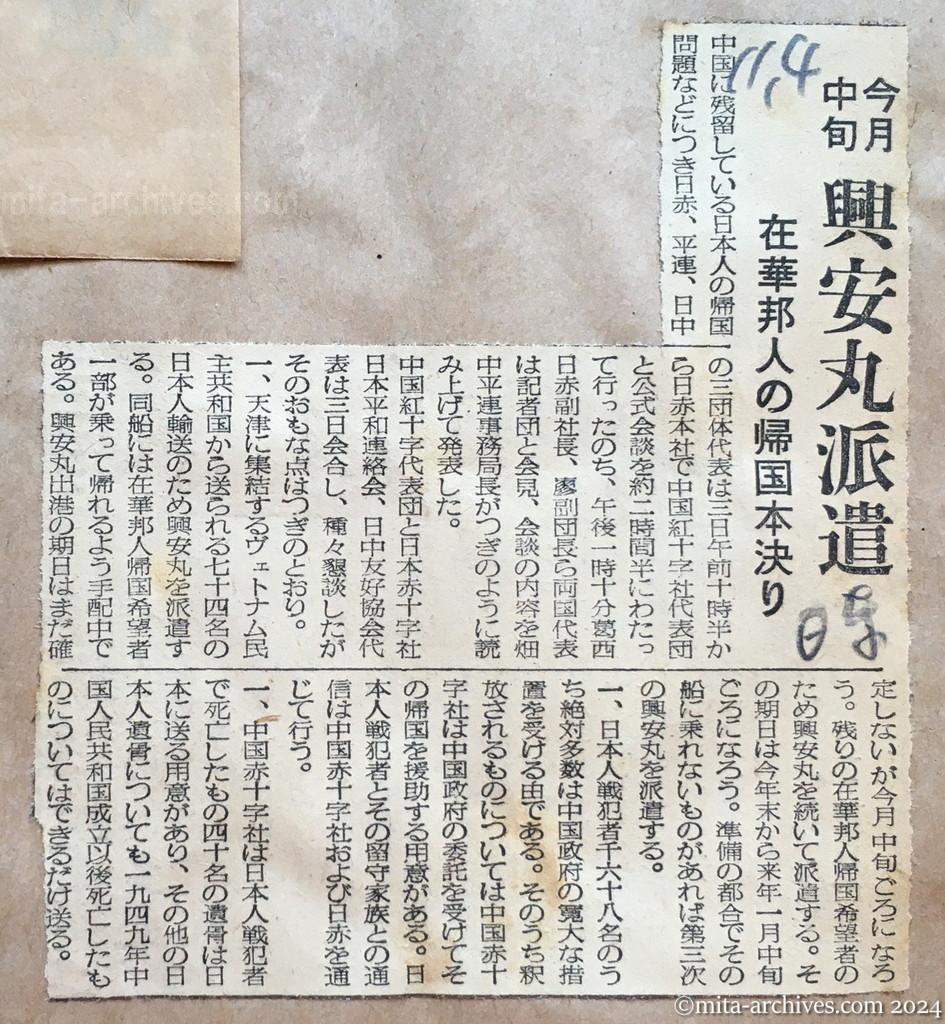 今月中旬
興安丸派遣
在華邦人の帰国本決り
11,4
中国に残留している日本人の帰国
問題などにつき日赤、平連、日中
の三団体代表は三日午前十時半か
ら日赤本社で中国紅十字社代表団
と公式会談を約二時間半にわたっ
て行ったのち、午後一時十分葛西
日赤副社長、廖副団長ら両国代表
は記者団と会見、会談の内容を畑
中平連事務局長がつぎのように読
み上げて発表した。
中国紅十字代表団と日本赤十字社
日本平和連絡会、日中友好協会代
表は三日会合し、種々懇談したが
そのおもな点はつぎのとおり。
一、天津に集結するヴェトナム民
主共和国から送られる七十四名の
日本人輸送のため興安丸を派遣す
る。同船には在華邦人帰国希望者
一部が乗って帰れるよう手配中で
ある。興安丸出港の期日はまだ確
定しないが今月中旬ごろになろ
う。残りの在華邦人帰国希望者の
ため興安丸を続いて派遣する。そ
の期日は今年末から来年一月中旬
ごろになろう。準備の都合でその
船に乗れないものがあれば第三次
の興安丸を派遣する。
一、日本人戦犯者千六十八名のう
ち絶対多数は中国政府の寛大な措
置を受ける由である。そのうち釈
放されるものについては中国赤十
字社は中国政府の委託を受けてそ
の帰国を援助する用意がある。日
本人戦犯者とその留守家族との通
信は中国赤十字社および日赤を通
じて行う。
一、中国赤十字社は日本人戦犯者
で死亡したもの四十名の遺骨は日
本に送る用意があり、その他の日
本人遺骨についても一九四九年中
国人民共和国成立以後死亡したも
のについてはできるだけ送る。
mita-archives.com
©mita-archives.com 2024